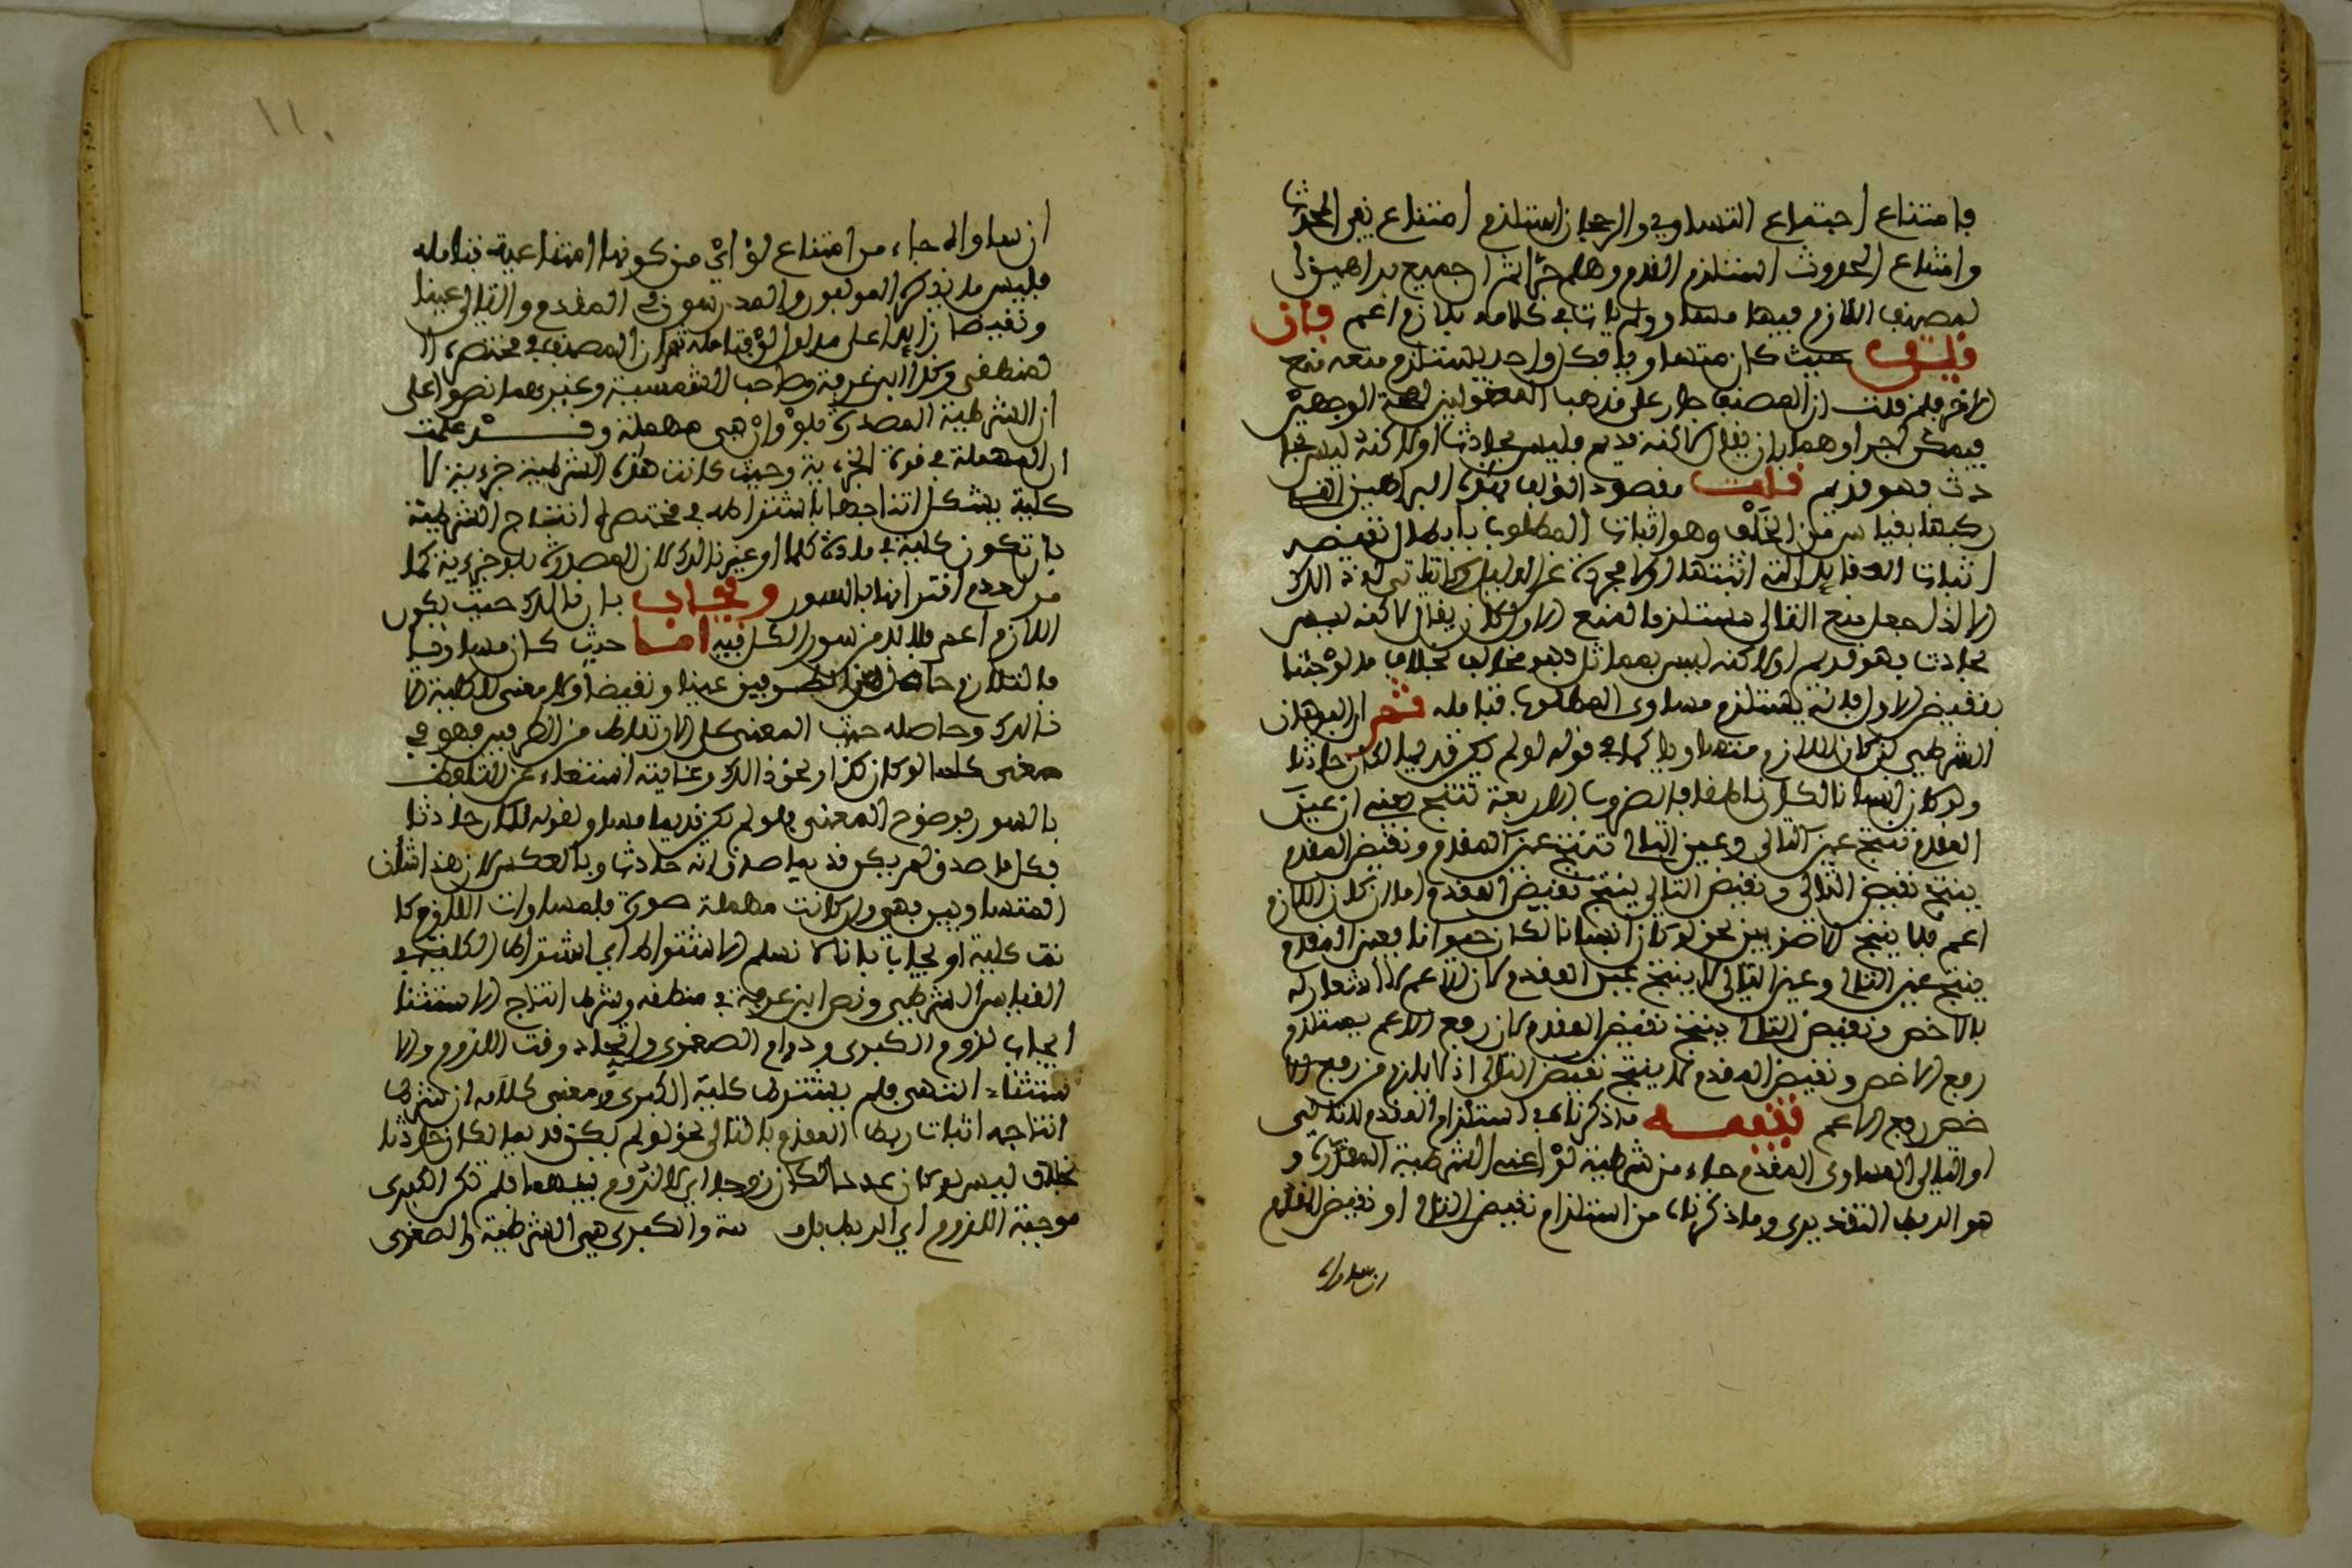 فامتناع اجتماع التساوي والرجحان استلزم امتناع نفي المحدث
وامتناع الحدوث استلزم القدم وهلم جرا ثم ان جميع براهين ا
لمصنف اللازم فيها مساو ولم يات في كلامه بلازم اعم فان
قلت حيث كان متساويا فكل واحد يستلزم منعه منع
الاخر فلم قلت ان المصنف جار على مذهب
فيمكن اجراوهما بان يقال لاكنه قديم فليس بحادث او لاكنه ليس بحا
دث فهو قديم قلت مقصود المؤلف بهذه البراهين
ركبها بقياس من الخلف وهو اثبات المطلوب بابطال نقيضه
اثبات العقايد التي اثبتها اولا مجردة عن الدليل ولا ياتي له ذلك
الا اذا جعل منع التالي مستلزما لمنع الاول كان يقال لاكنه ليس
بحادث فهو قديم او لاكنه ليس بمماثل فهو مخالف بخلاف ما لو جئنا
بنقيض الاول فانه يستلزم مساوي المطلوب فتامله ثم ان البرهان
الشرطي ان كان اللازم متساويا كما في قوله لو لم يكن قديما لكان حادثا
ولو كان انسانا لكان ناطقا فالضروب الاربعة تنتج يعني ان عين
المقدم تنتج عين التالي وعين التالي تنتج عين المقدم ونقيض المقدم
ينتج نقيض التالي ونقيض التالي ينتج نقيض المقدم اما ان كان اللازم
اعم فلا ينتج الا ضربين نحو لو كان انسانا لكان حيوانا فعين المقدم
ينتج عين التالي وعين التالي لا ينتج عين المقدم لان الاعم لا اشعار له
بالاخص ونقيض التالي ينتج نقيض المقدم لان رفع الاعم يستلزم
رفع الاخص ونقيض المقدم لا ينتج نقيض التالي اذ لا يلزم من رفع الا
خص رفع الاعم تنبيه ما ذكرناه في استلزام المقدم للتالي
او التالي المساوي المقدم جاء من شرطية لو اعني الشرطية المقدرة و
هو الربط التقديري وما ذكرناه من استلزام نقيض التالي او نقيض المقدم
ان ساواه
١١٠
ان ساواه جاء من امتناع لو اي من كونها امتناعية فتامله
فليس ما يذكره المولفون والمدرسون في المقدم والتالي عينا
ونقيضا زايدا على مدلول لو فتامله ثم ان المصنف في مختصره ا
لمنطقي وكذا ابن عرفة وصاحب الشمسية وغيرهما نصوا على
ان الشرطية المصدرة بلو وان هي مهملة وقد علمت
ان المهملة في قوة الجزءية وحيث كانت هذه الشرطية جزءية لا
كلية يشكل انتاجها باشتراطه في مختصره انتاج الشرطية
بان تكون كلية في مادة كلما او غير ذالك لان المصدرة بلو جزءية كما
مر لعدم اقترانها بالسور ويجاب بان ذالك حيث يكون
اللازم اعم فلا بد من سور الكل فيه اما حيث كان مساويا
فالتلازم حاصل من الطرفين عينا ونقيضا ولا معنى للكلية الا
ذالك وحاصله حيث المعنى على الارتباط من الطرفين فهو في
معنى كلما لو كان كذا ونحو ذالك وغايته استغناء عن التلفظ
بالسور فوضوح المعنى فلو لم يكن قديما مساو لقوله لكان حادثا
فكل ما صدق لم يكن قديما صدق انه حادثا وبالعكس لان هذا شان
المتساويين فهو وان كانت مهملة صورة فلمساوات اللازم كا
نت كلية او يجاب بانا لا نسلم الاشتراط اي اشتراط الكلية في
القياس الشرطي ونص ابن عرفة في منطقه وشرط انتاج الاستثنا
ايجاب لزوم الكبرى ودوام الصغرى واتحاد وقت اللزوم والا
ستثناء انتهى فلم يشترط كلية الكبرى ومعنى كلامه ان شرط
انتاجه اثبات ربط المقدم بالتالي نحو لو لم يكن قديما لكان حادثا
بخلاف ليس لو كان عددا لكان زوجا اي لا لزوم بينهما فلم تكن الكبرى
موجبة اللزوم اي الربط والكبرى هي الشرطية والصغرى